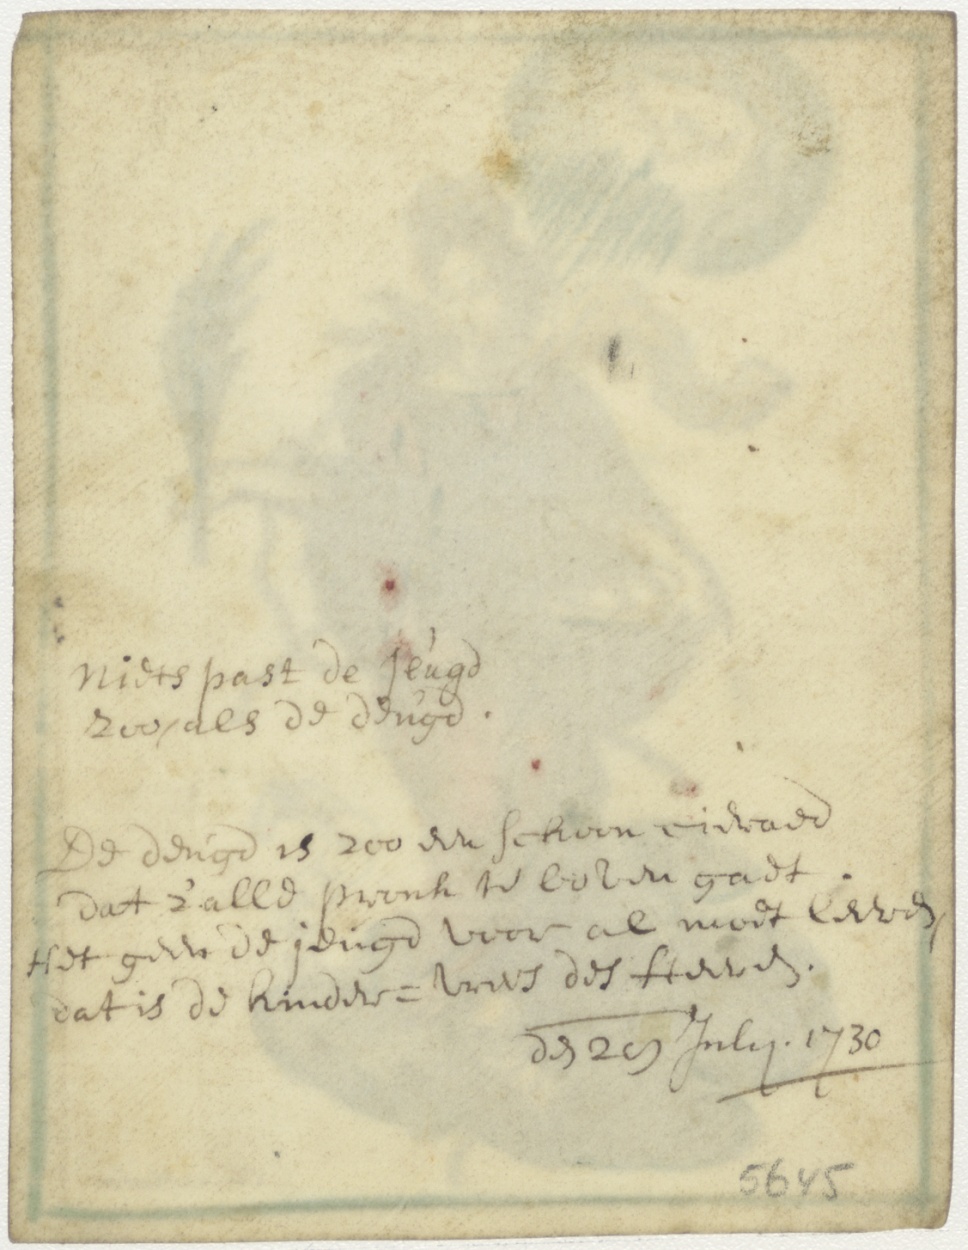 Niets past de Jeugd
zoo als de deugd.
De deugd is zoo een schoon cieraed
dat z'alle pronk te boven gaet.
Het geen de jeugd voor al moet leeren,
dat is de kinder = vrees des Heeren.
den July. 1730
5645